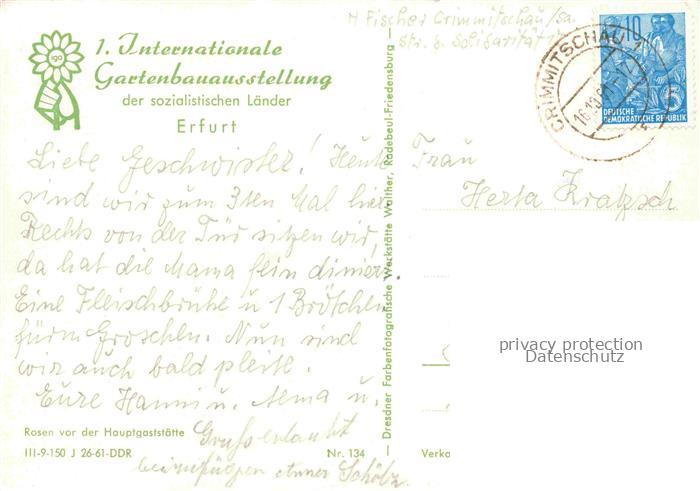 H Fischer Crimmitschau/Sa.
Str. d. Solidarität
1. Internationale
Gartenbauausstellung
der sozialistischen Länder
Erfurt
iga
Liebe Geschwister! Heute
sind wir zum 3ten Mal hier
Rechts von der Tür sitzen wir,
da hat die Mama fein diniert.
Eine Fleischbrühe u 1 Brötchen
fürn Groschen. Nun sind
wir auch bald pleite.
Eure Hanni u. u.
Gruß erlaubt
beizufügen Scholz
Rosen vor der Hauptgaststätte
III-9-150 J 26-61-DDR
Nr. 134
Dresdner Farbenfotografische Werkstätte Walther, Radebeul-Friedensburg
CRIMMITSCHAU 1
10
5
DEUTSCHE
DEMOKRATISCHE REPUBLIK
Frau
Herta Kratzsch
privacy protection
Datenschutz
Verka